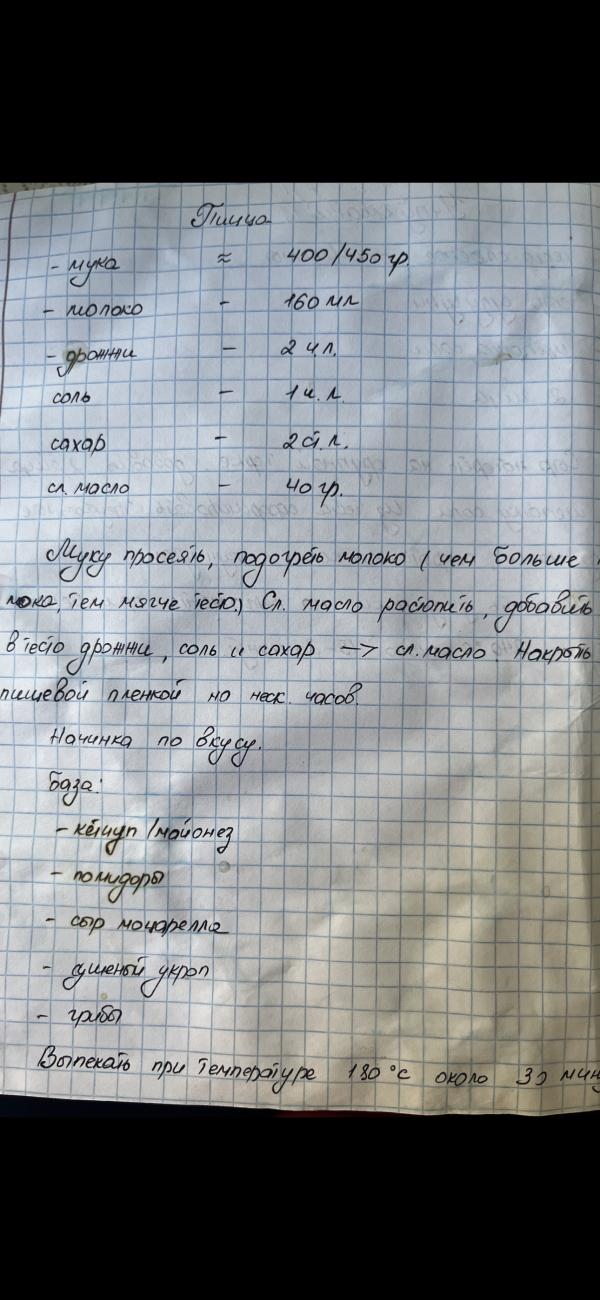 Пицца
- мука ≈ 400/450 гр.
- молоко - 160 мл
- дрожжи - 2 ч.л.
соль - 1 ч.л.
сахар - 2 ст.л.
сл. масло - 40 гр.
Муку просеять, подогреть молоко (чем больше
мока, тем мягче тесто.) Сл. масло растопить, добавить
в тесто дрожжи, соль и сахар → сл. масло. Накрыть
пищевой пленкой на неск. часов.
Начинка по вкусу.
База:
- кетчуп / майонез
- помидоры
- сыр моцарелла
- сушеный укроп
- грибы
Выпекать при температуре 180 °C около 30 мин